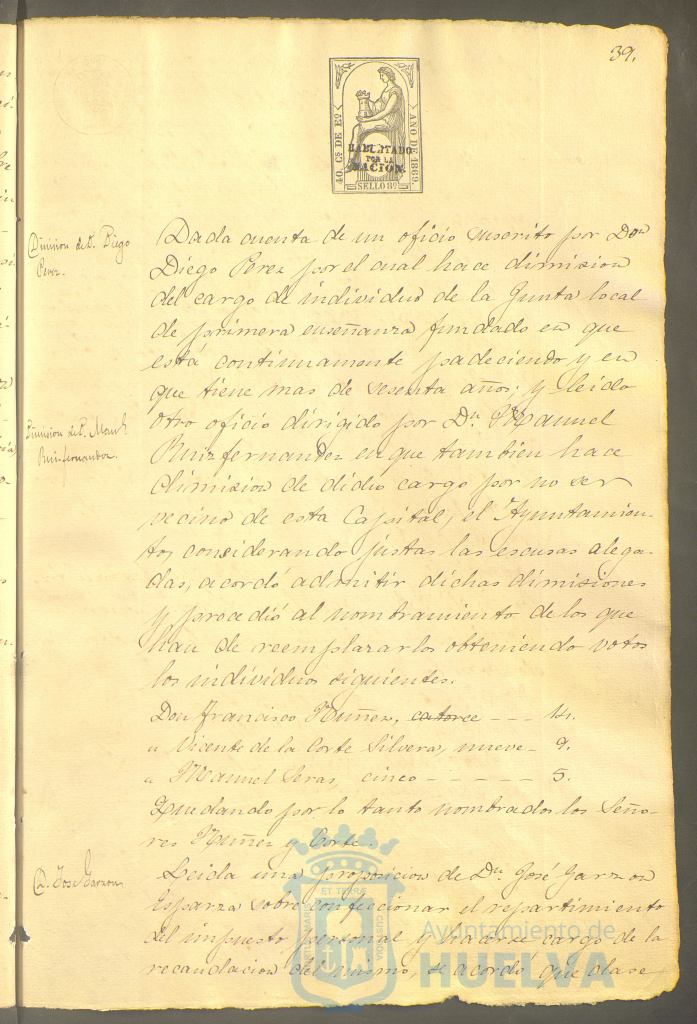 39.
40. Cs DE Eo
AÑO DE 1869.
HABILITADO
POR LA
NACION.
SELLO 8º
Dimision de D. Diego
Perez.
Dada cuenta de un oficio suscrito por Don
Diego Perez por el cual hace dimision
del cargo de individuo de la Junta local
de primera enseñanza fundado en que
está continuamente padeciendo y en
que tiene mas de sesenta años; y leido
Dimision de D. Manl
Ruizfernandez.
otro oficio dirigido por Dn. Manuel
Ruizfernandez en que tambien hace
dimision de dicho cargo por no ser
vecino de esta Capital, el Ayuntamien-
to, considerando justas las escusas alega-
das, acordó admitir dichas dimisiones
y procedió al nombramiento de los que
han de reemplazarlos obteniendo votos
los individuos siguientes.
Don Francisco Nuñez, catorce - - - 14.
" Vicente de la Corte Silvera, nueve - 9.
" Manuel Seras, cinco - - - - - 5.
Quedando por lo tanto nombrados los Seño-
res Nuñez y Corte.
D. José Garzon
Leida una proposicion de Dn. José Garzon
Esparza sobre confeccionar el repartimiento
del impuesto personal y hacerse cargo de la
recaudacion del mismo, se acordó que
Ayuntamiento de
HUELVA